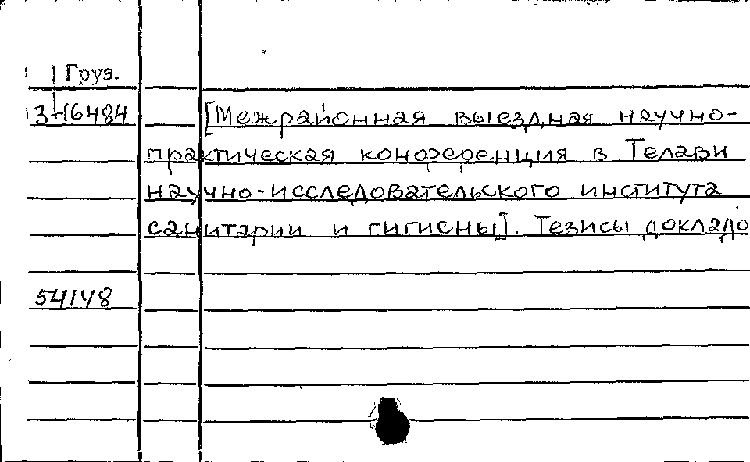 Груз.
3-16484
[Межрайонная выездная научно-
практическая конференция в Телави
научно-исследовательского института
санитарии и гигиены]. Тезисы докладо
54148